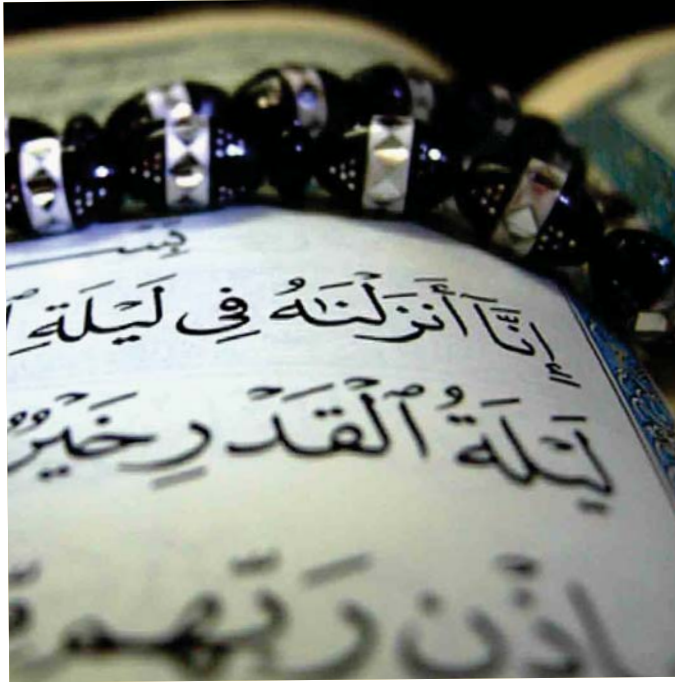 بِسْـ
إِنَّآ أَنزَلْنَٰهُ فِى لَيْلَةِ ٱ
لَيْلَةُ ٱلْقَدْرِ خَيْرٌ
بِإِذْنِ رَبِّهِم